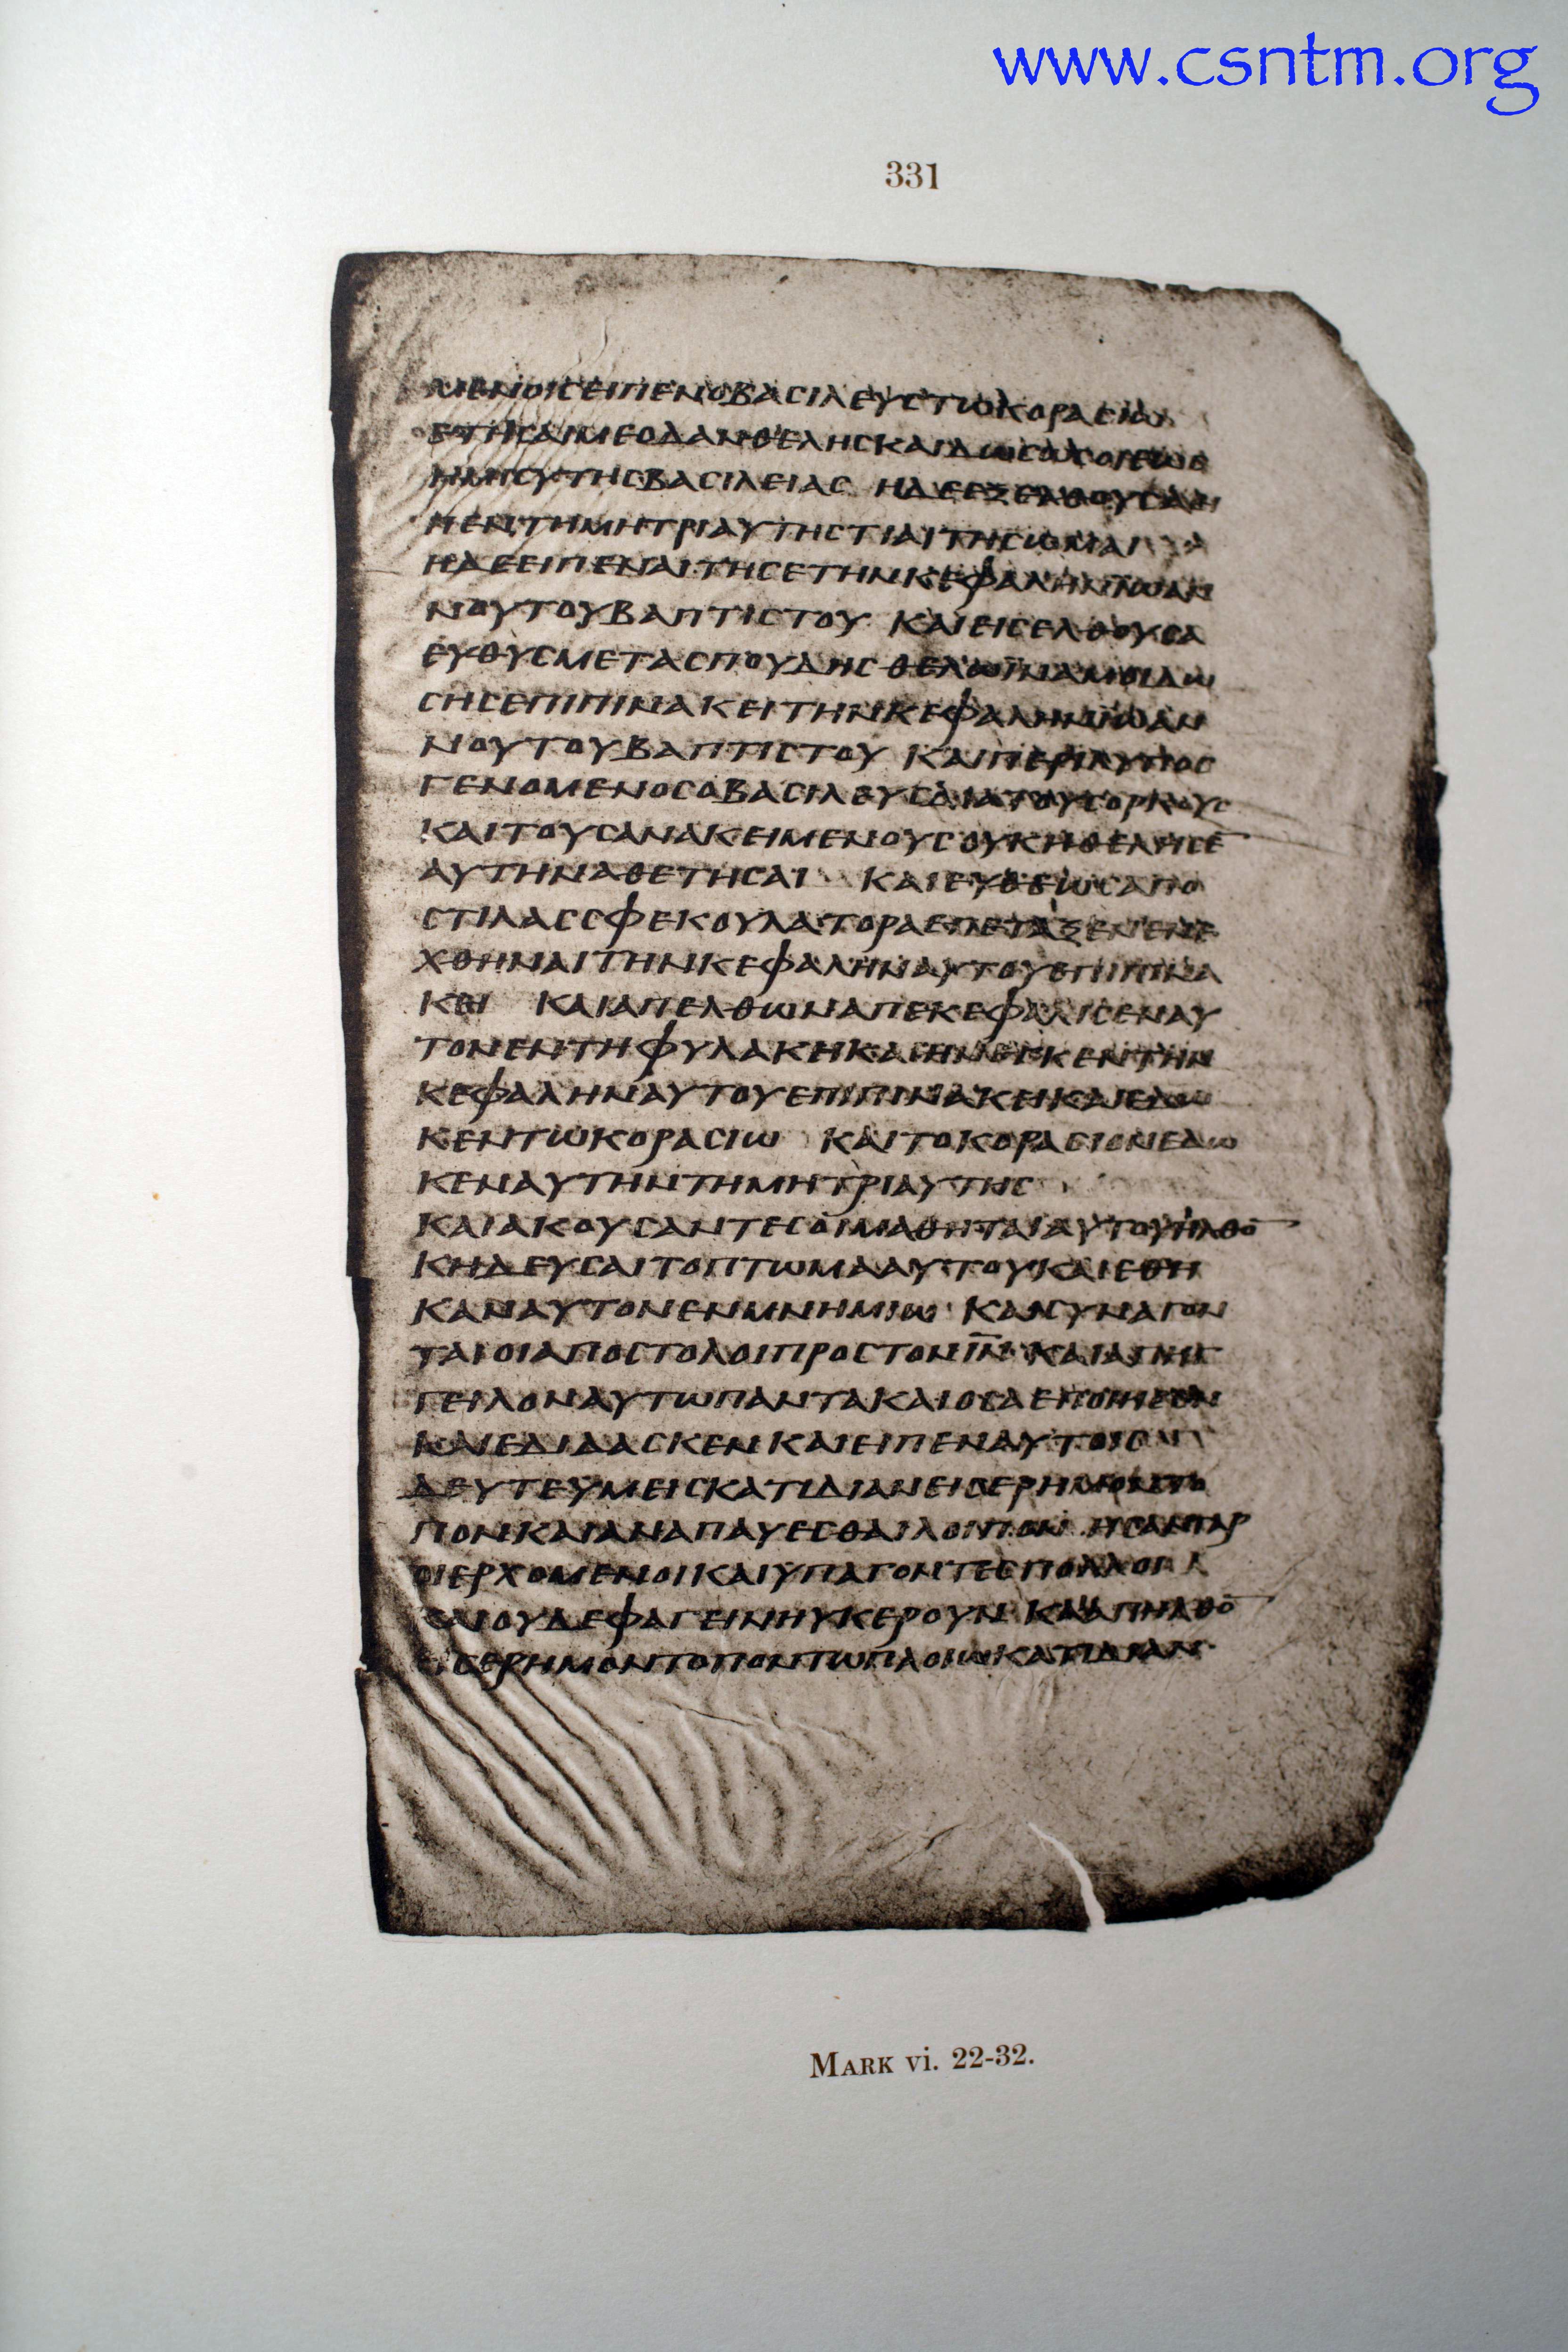 www.csntm.org
331
ΜΕΝΟΙϹΕΙΠΕΝΟΒΑϹΙΛΕΥϹΤΩΚΟΡΑϹΙΩ
ΕΤΗϹΑΙΜΕΟΔΑΝΘΕΛΗϹΚΑΙΔΩϹΩϹΟΙΕΩϹ
ΗΜΙϹΥΤΗϹΒΑϹΙΛΕΙΑϹ ΗΔΕΕΞΕΛΘΟΥϹΑΕΙ
ΠΕΝΤΗΜΗΤΡΙΑΥΤΗϹΤΙΑΙΤΗϹΩΜΑΙ
ΗΔΕΕΙΠΕΝΑΙΤΗϹΕΤΗΝΚΕΦΑΛΗΝΙΩΑΝ
ΝΟΥΤΟΥΒΑΠΤΙϹΤΟΥ ΚΑΙΕΙϹΕΛΘΟΥϹΑ
ΕΥΘΥϹΜΕΤΑϹΠΟΥΔΗϹΘΕΛΩΙΝΑΜΟΙΔΩ
ϹΗϹΕΠΙΠΙΝΑΚΕΙΤΗΝΚΕΦΑΛΗΝΙΩΑΝ
ΝΟΥΤΟΥΒΑΠΤΙϹΤΟΥ ΚΑΙΠΕΡΙΛΥΠΟϹ
ΓΕΝΟΜΕΝΟϹΟΒΑϹΙΛΕΥϹΔΙΑΤΟΥϹΟΡΚΟΥϹ
ΚΑΙΤΟΥϹΑΝΑΚΕΙΜΕΝΟΥϹΟΥΚΗΘΕΛΗϹΕ̅
ΑΥΤΗΝΑΘΕΤΗϹΑΙ ΚΑΙΕΥΘΕΩϹΑΠΟ
ϹΤΙΛΑϹϹΦΕΚΟΥΛΑΤΟΡΑΕΠΕΤΑΞΕΝΕΝΕ
ΧΘΗΝΑΙΤΗΝΚΕΦΑΛΗΝΑΥΤΟΥΕΠΙΠΙΝΑ
ΚΕΙ ΚΑΙΑΠΕΛΘΩΝΑΠΕΚΕΦΑΛΙϹΕΝΑΥ
ΤΟΝΕΝΤΗΦΥΛΑΚΗΚΑΙΗΝΕΓΚΕΝΤΗΝ
ΚΕΦΑΛΗΝΑΥΤΟΥΕΠΙΠΙΝΑΚΕΙΚΑΙΕΔΩ
ΚΕΝΤΩΚΟΡΑϹΙΩ ΚΑΙΤΟΚΟΡΑϹΙΟΝΕΔΩ
ΚΕΝΑΥΤΗΝΤΗΜΗΤΡΙΑΥΤΗϹ
ΚΑΙΑΚΟΥϹΑΝΤΕϹΟΙΜΑΘΗΤΑΙΑΥΤΟΥΗΛΘΟ̅
ΚΗΔΕΥϹΑΙΤΟΠΤΩΜΑΑΥΤΟΥΚΑΙΕΘΗ
ΚΑΝΑΥΤΟΝΕΝΜΝΗΜΙΩ ΚΑΙϹΥΝΑΓΟΝ
ΤΑΙΟΙΑΠΟϹΤΟΛΟΙΠΡΟϹΤΟΝΙ̅Ν̅ ΚΑΙΑΠΗΓ
ΓΕΙΛΟΝΑΥΤΩΠΑΝΤΑΚΑΙΟϹΑΕΠΟΙΗϹΕΝ
ΚΑΙΕΔΙΔΑϹΚΕΝΚΑΙΕΙΠΕΝΑΥΤΟΙϹ
ΔΕΥΤΕΥΜΕΙϹΚΑΤΙΔΙΑΝΕΙϹΕΡΗΜΟΝΤΟ
ΠΟΝΚΑΙΑΝΑΠΑΥΕϹΘΑΙΛΟΙΠΟΝ ΗϹΑΝΓΑΡ
ΟΙΕΡΧΟΜΕΝΟΙΚΑΙΥΠΑΓΟΝΤΕϹΠΟΛΛΟΙ
ΚΑΙΟΥΔΕΦΑΓΕΙΝΗΥΚΕΡΟΥΝ ΚΑΙΑΠΗΛΘΟ̅
ΕΙϹΕΡΗΜΟΝΤΟΠΟΝΤΩΠΛΟΙΩΚΑΤΙΔΙΑΝ
MARK vi. 22-32.